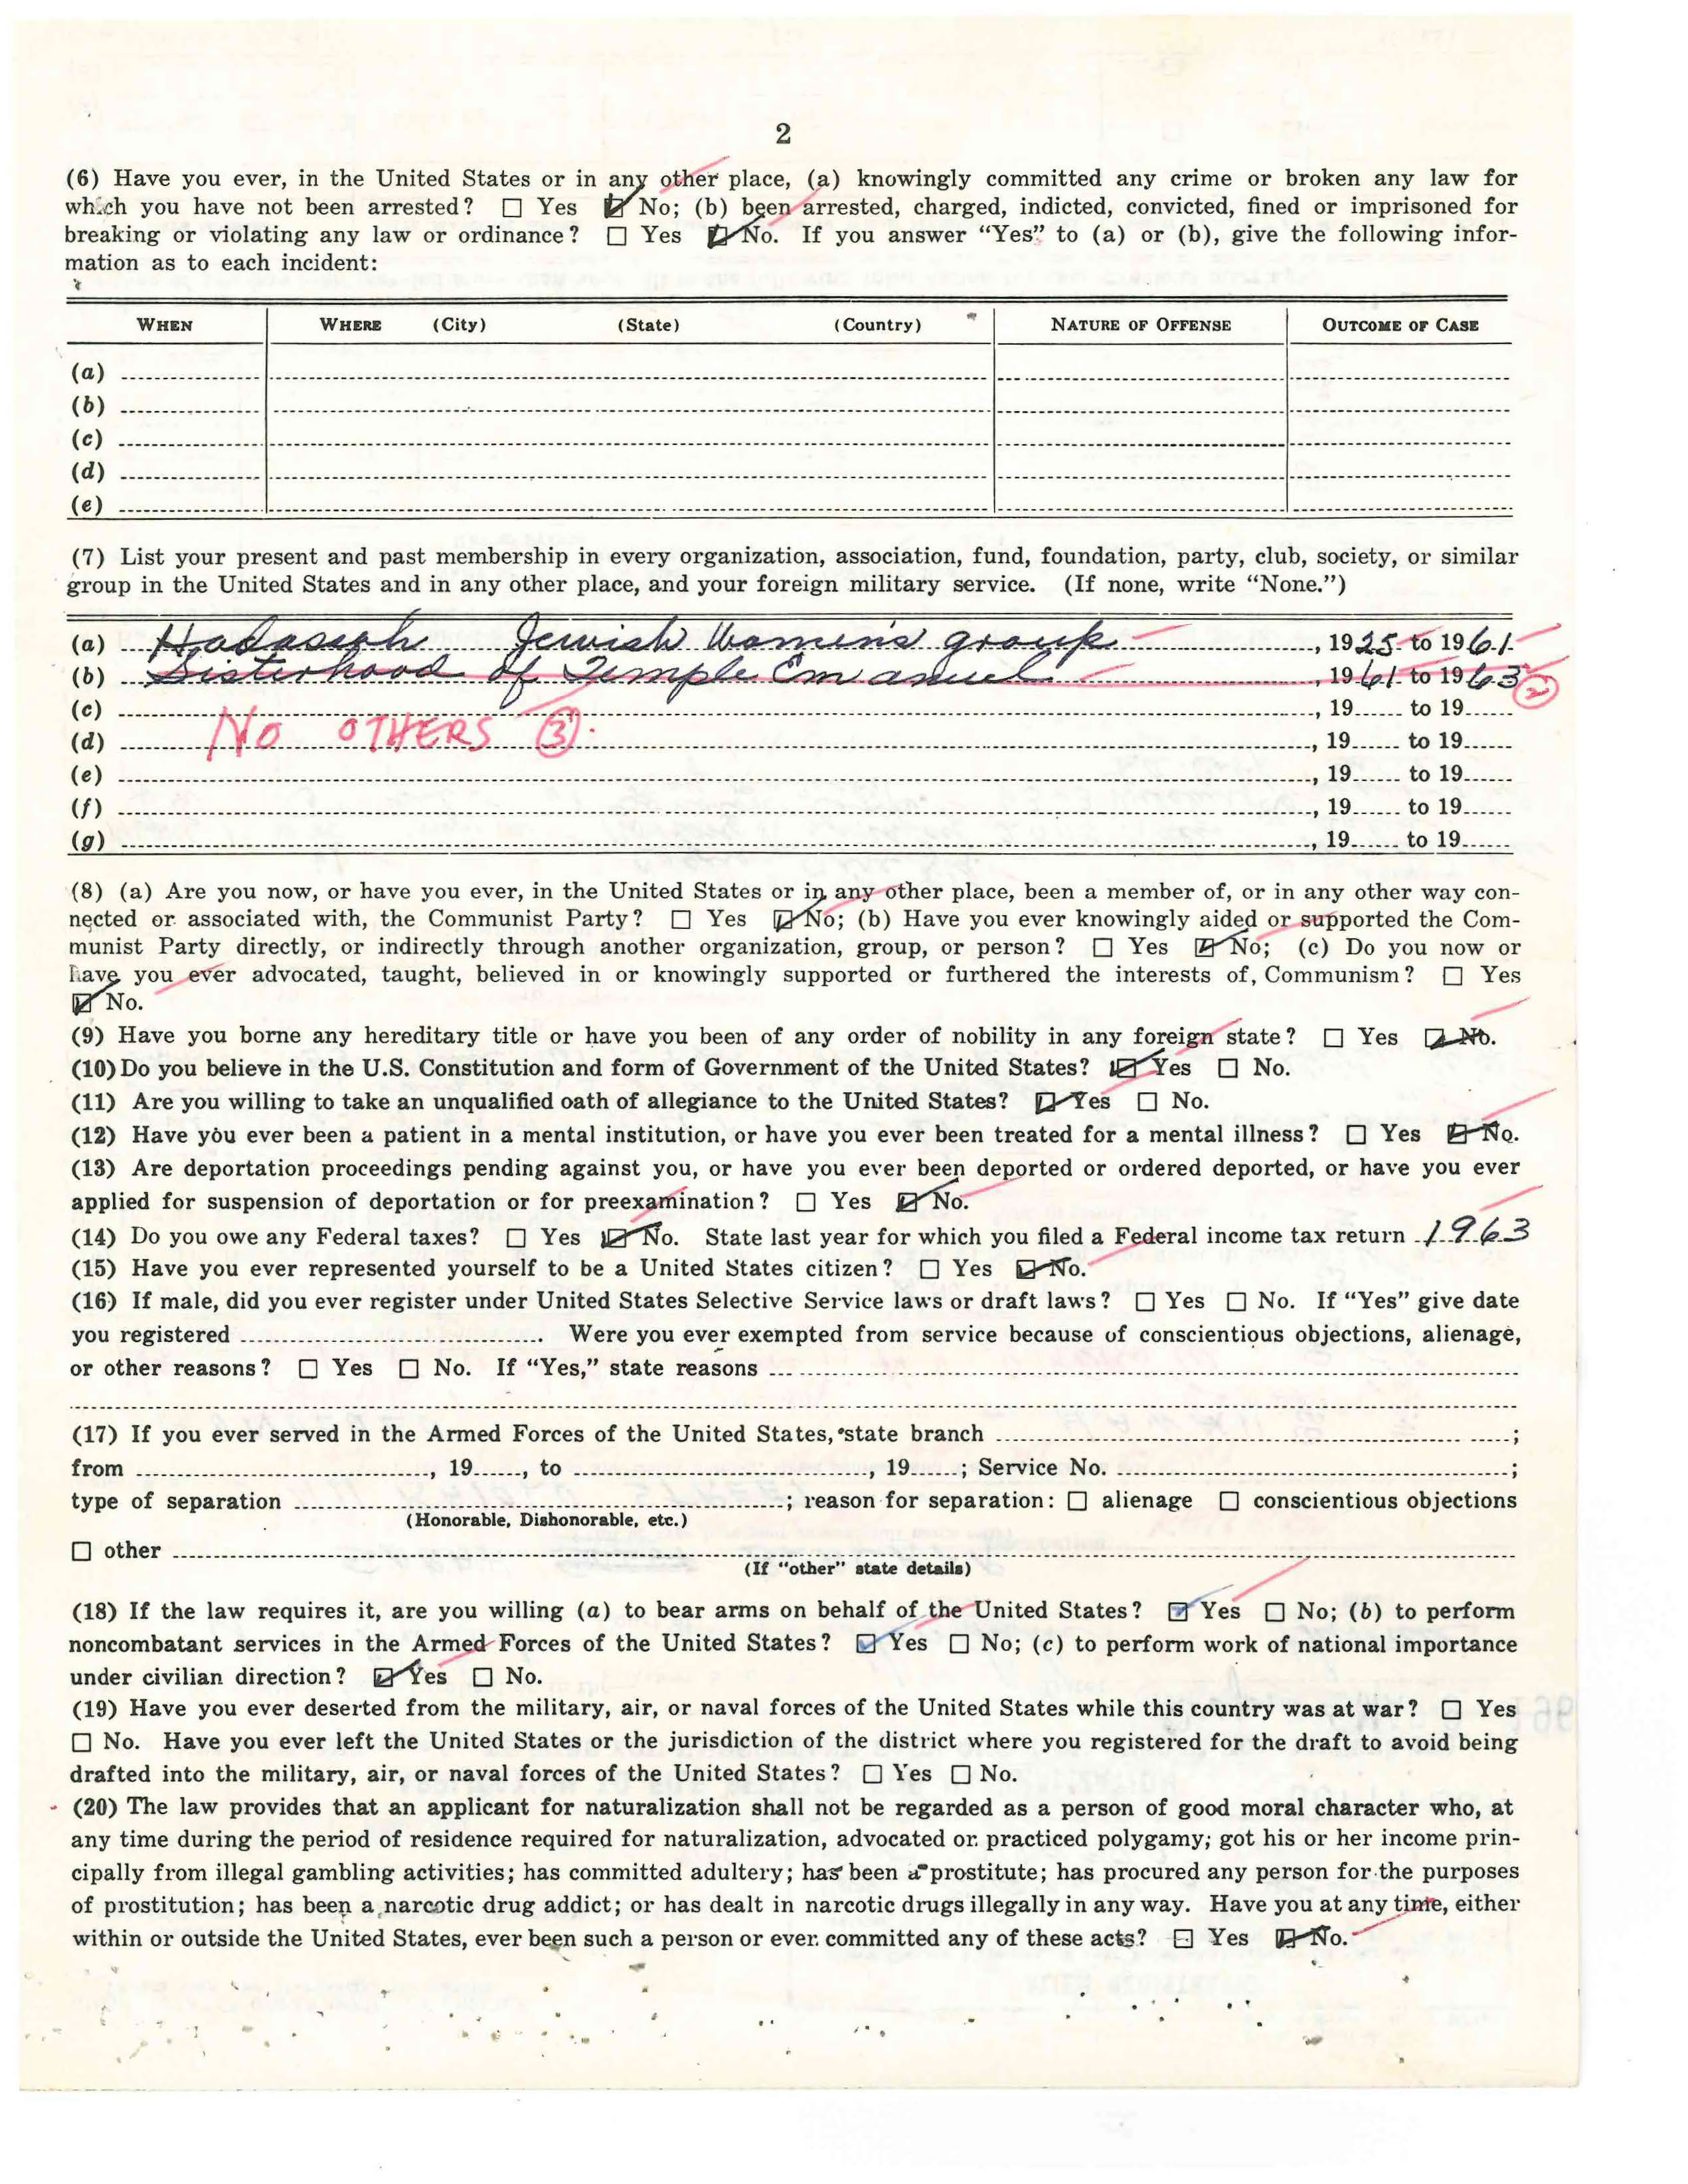 2
(6) Have you ever, in the United States or in any other place, (a) knowingly committed any crime or broken any law for
which you have not been arrested? ☐ Yes ☑ No; (b) been arrested, charged, indicted, convicted, fined or imprisoned for
breaking or violating any law or ordinance? ☐ Yes ☑ No. If you answer “Yes” to (a) or (b), give the following infor-
mation as to each incident:
WHEN WHERE (City) (State) (Country) NATURE OF OFFENSE OUTCOME OF CASE
(a)
(b)
(c)
(d)
(e)
(7) List your present and past membership in every organization, association, fund, foundation, party, club, society, or similar
group in the United States and in any other place, and your foreign military service. (If none, write “None.”)
(a) Hadassah Jewish Women's group, 1925 to 1961
(b) Sisterhood of Temple Emanuel, 1961 to 1963 (2)
(c) , 19 to 19
(d) NO OTHERS (3). , 19 to 19
(e) , 19 to 19
(f) , 19 to 19
(g) , 19 to 19
(8) (a) Are you now, or have you ever, in the United States or in any other place, been a member of, or in any other way con-
nected or associated with, the Communist Party? ☐ Yes ☑ No; (b) Have you ever knowingly aided or supported the Com-
munist Party directly, or indirectly through another organization, group, or person? ☐ Yes ☑ No; (c) Do you now or
have you ever advocated, taught, believed in or knowingly supported or furthered the interests of, Communism? ☐ Yes
☑ No.
(9) Have you borne any hereditary title or have you been of any order of nobility in any foreign state? ☐ Yes ☑ No.
(10) Do you believe in the U.S. Constitution and form of Government of the United States? ☑ Yes ☐ No.
(11) Are you willing to take an unqualified oath of allegiance to the United States? ☑ Yes ☐ No.
(12) Have you ever been a patient in a mental institution, or have you ever been treated for a mental illness? ☐ Yes ☑ No.
(13) Are deportation proceedings pending against you, or have you ever been deported or ordered deported, or have you ever
applied for suspension of deportation or for preexamination? ☐ Yes ☑ No.
(14) Do you owe any Federal taxes? ☐ Yes ☑ No. State last year for which you filed a Federal income tax return 1963
(15) Have you ever represented yourself to be a United States citizen? ☐ Yes ☑ No.
(16) If male, did you ever register under United States Selective Service laws or draft laws? ☐ Yes ☐ No. If “Yes” give date
you registered . Were you ever exempted from service because of conscientious objections, alienage,
or other reasons? ☐ Yes ☐ No. If “Yes,” state reasons
(17) If you ever served in the Armed Forces of the United States, state branch ;
from , 19 , to , 19 ; Service No. ;
type of separation ; reason for separation: ☐ alienage ☐ conscientious objections
(Honorable, Dishonorable, etc.)
☐ other
(If “other” state details)
(18) If the law requires it, are you willing (a) to bear arms on behalf of the United States? ☑ Yes ☐ No; (b) to perform
noncombatant services in the Armed Forces of the United States? ☑ Yes ☐ No; (c) to perform work of national importance
under civilian direction? ☑ Yes ☐ No.
(19) Have you ever deserted from the military, air, or naval forces of the United States while this country was at war? ☐ Yes
☐ No. Have you ever left the United States or the jurisdiction of the district where you registered for the draft to avoid being
drafted into the military, air, or naval forces of the United States? ☐ Yes ☐ No.
(20) The law provides that an applicant for naturalization shall not be regarded as a person of good moral character who, at
any time during the period of residence required for naturalization, advocated or practiced polygamy; got his or her income prin-
cipally from illegal gambling activities; has committed adultery; has been a prostitute; has procured any person for the purposes
of prostitution; has been a narcotic drug addict; or has dealt in narcotic drugs illegally in any way. Have you at any time, either
within or outside the United States, ever been such a person or ever committed any of these acts? ☐ Yes ☑ No.